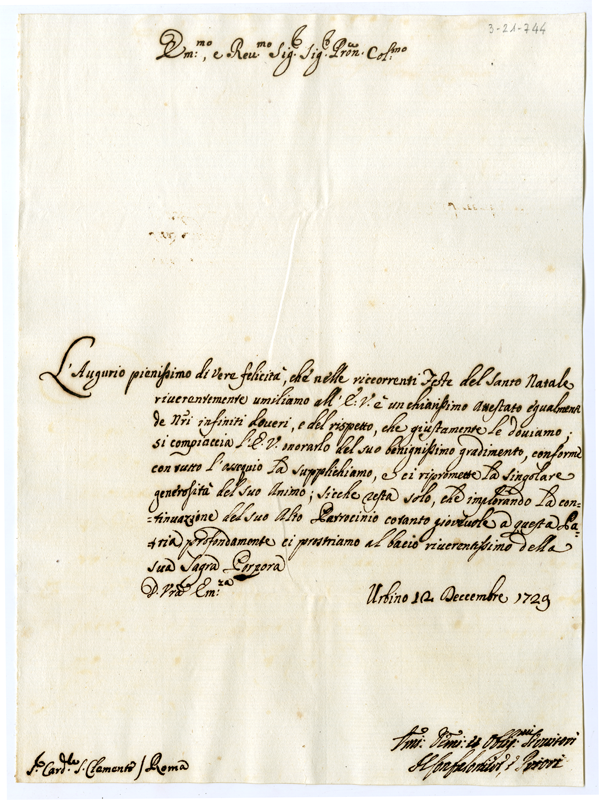 3-21-744
Em:mo, e Reu.mo Sig.r Sig.r Pron. Col.mo
L'Augurio pienissimo di vere felicità, che nelle riccorrenti Feste del Santo Natale
riuerentemente umiliamo all'E: V: è un chiarissimo attestato egualmen
de Nri infiniti doueri, e del rispetto, che giustamente le douiamo;
si compiaccia l'E: V: onorarlo del suo benignissimo gradimento, conforme
con tutto l'ossequio La supplichiamo, e ci ripromette la singolare
generosità del suo Animo; sicche resta solo, che implorando la con-
=tinuazione del suo Alto Patrocinio cotanto gioueuole a questa Pa-
=tria profondamente ci prostriamo al bacio riuerentissimo della
sua Sagra Porpora
D. Vra Em:za
Urbino 12 Deccembre 1729
Seruitori
Il Confaloniere, e Priori
S.r Card.le S. Clemente / Roma